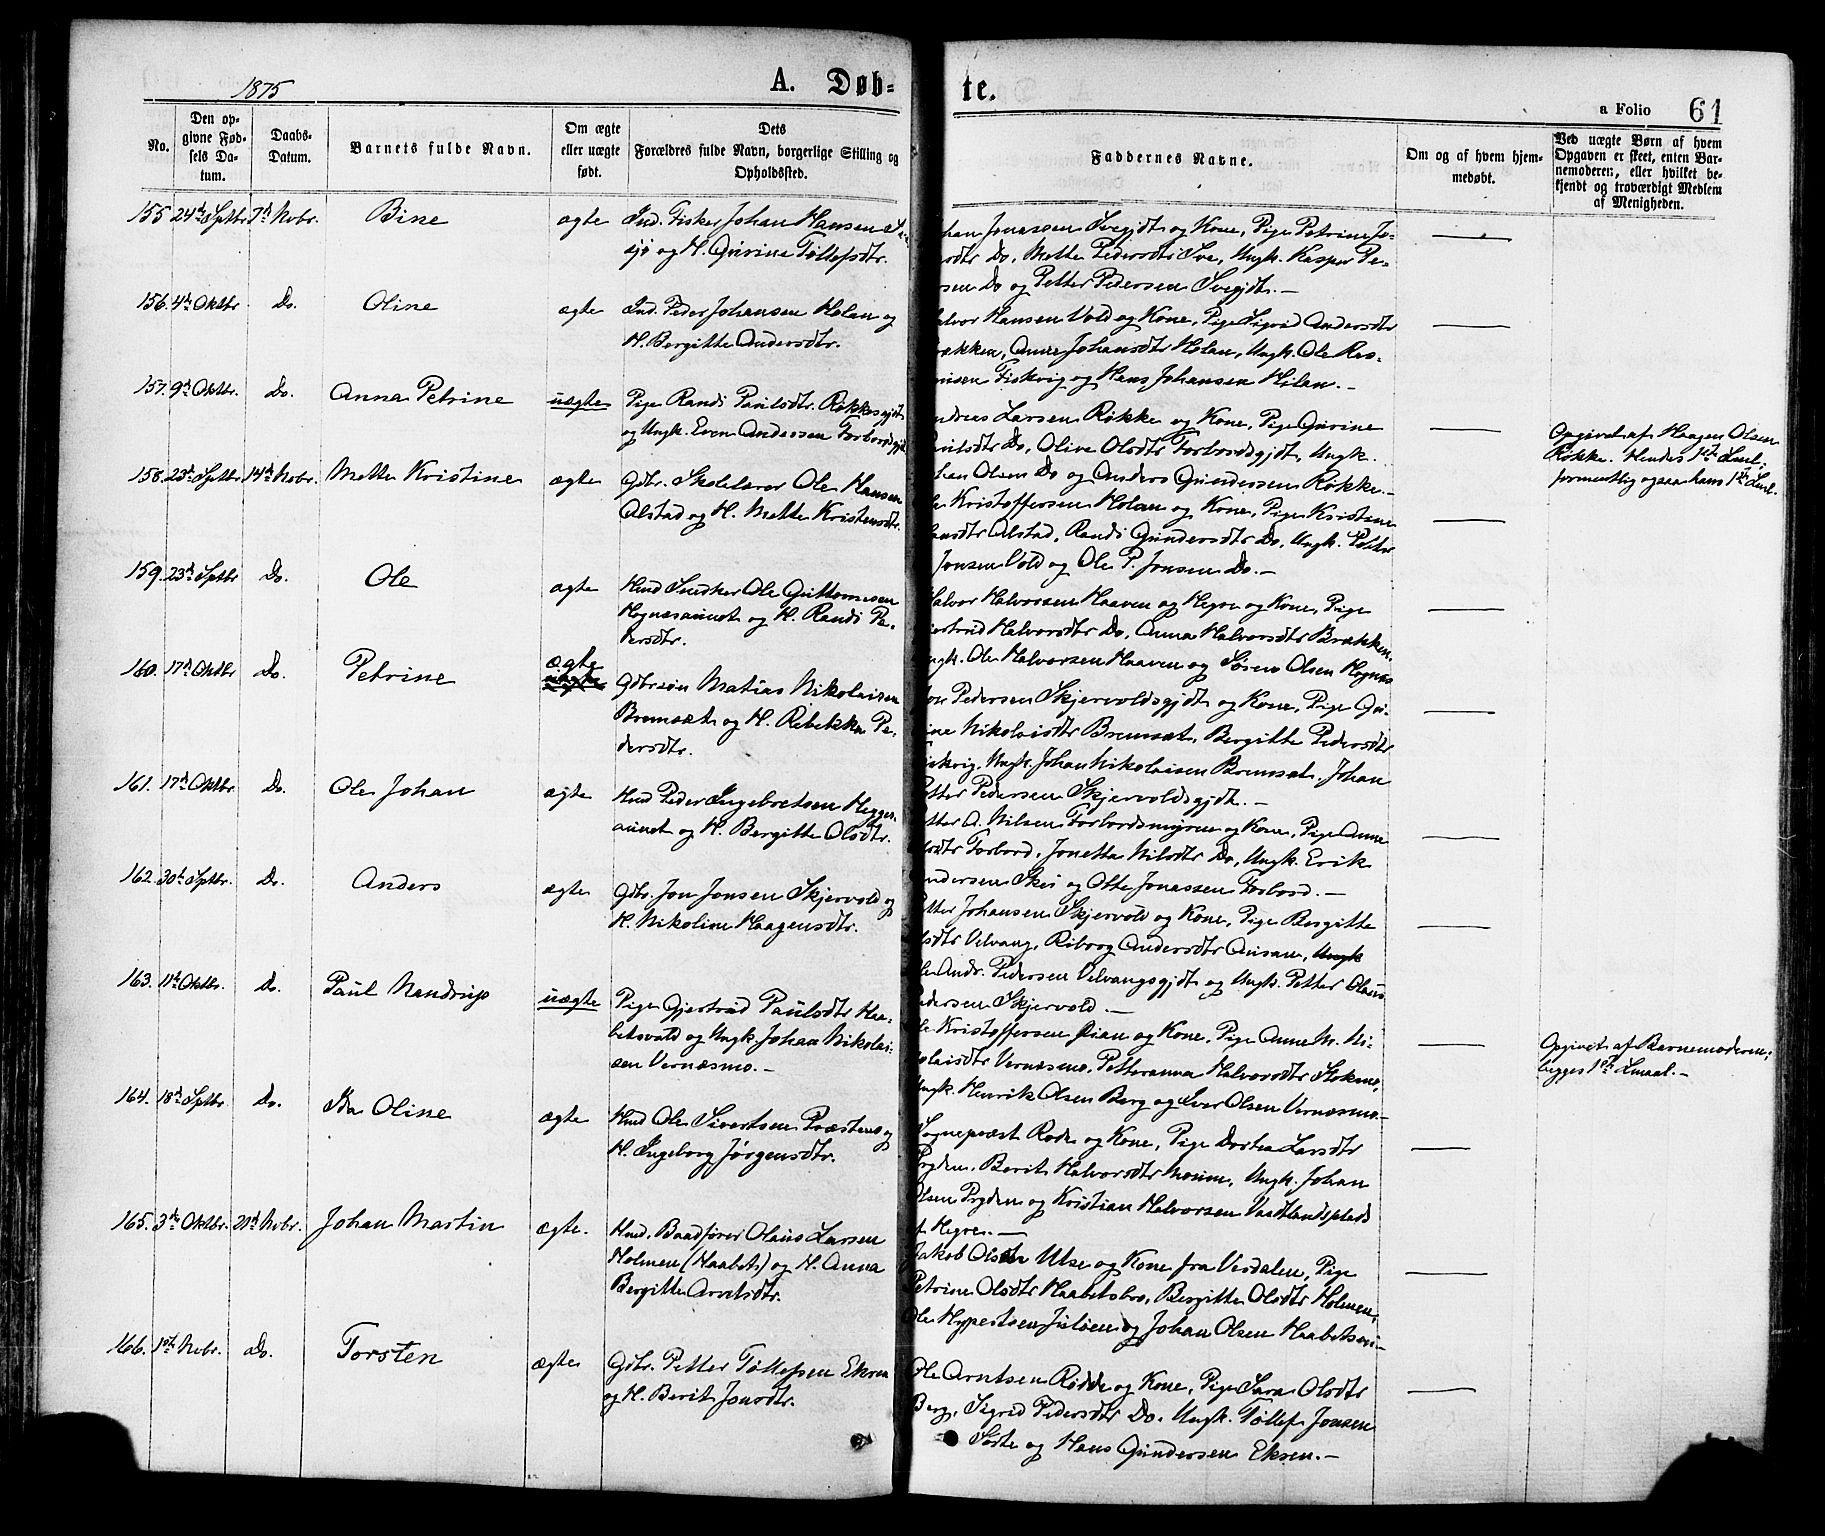 1875
A. Døb-
te.
a Folio 61
No.
Den op-
givne Fød-
sels Da-
tum.
Daabs-
Datum.
Barnets fulde Navn.
Om ægte
eller uægte
født.
Dets
Forældres fulde Navn, borgerlige Stilling og
Opholdssted.
Faddernes Navne.
Om og af hvem hjem-
medøbt.
Ved uægte Børn af hvem
Opgaven er skeet, enten Bar-
nemoderen, eller hvilket be-
kjendt og troværdigt Medlem
af Menigheden.
155 24de Sptbr 7de Nobr. Bine ægte
Ind. Fisker Johan Hansen
sjø og H. Gurine Tøllefsdtr.
han Jonassen Svegjdt og Kone, Pige Petrine Jo-
rsdtr Do, Mette Pedersdtr Sve, Ungk. Kasper Pe-
rsen Do og Petter Pedersen Svegjdt. —
156. 4de Oktbr Do. Oline ægte
Ind. Peder Johansen Holan og
H. Bergitte Andersdtr.
alvor Hansen Vold og Kone, Pige Sigrid Andersdtr
rækken, Anne Johansdtr Holan, Ungk. Ole Ras-
musen Fiskvig og Hans Johansen Hilan. —
157. 9de Oktbr. Do. Anna Petrine uægte
Pige Randi Paulsdtr. Røkkegjdt
og Ungk. Even Andersen Forbordsgjdt
ndreas Larsen Røkke og Kone, Pige Gurine
aulsdtr Do, Olive Olsdtr Forbordsgjdt, Ungk.
ohan Olsen Do og Anders Gundersen Røkke. —
Opgivet af Haagen Olsen
Røkke. Hendes 1ste Leul,
formentlig ogsaa hans 1ste Leul.
158. 23de Sptbr 14de Nobr. Mette Kristine ægte
Gdbr. Skolelærer Ole Hansen
Alstad og H. Mette Kristensdtr.
le Kristoffersen Holan og Kone, Pige Kristine
ansdtr Alstad, Randi Gundersdtr Do, Ungk. Petter
Jonsen Vold og Ole P. Jonsen Do. —
159. 23de Sptbr Do. Ole ægte
Hmd Snedker Ole Guttormsen
Hognesaunet og H. Randi Pe-
dersdtr.
Halvor Halvorsen Haaven og Hegre og Kone, Pige
jertrud Halvorsdtr Do, Anna Halvorsdtr Brækken,
ngk. Ole Halvorsen Haaven og Søren Olsen Hognes
160. 17de Oktbr Do. Petrine ægte
Gdbrsøn Matias Nikolaisen
Bremset og H. Rebekka Pe-
dersdtr.
on Pedersen Skjervoldsgjdt og Kone, Pige Gu-
rine Nikolaisdtr Bremset, Bergitte Pedersdtr
iskvig, Ungk. Johan Nikolaisen Bremset, Johan
etter Pedersen Skjervoldsgjdt. —
161. 17de Oktbr. Do. Ole Johan ægte
Hmd Peder Ingebretsen Hegges-
aunet og H. Bergitte Olsdtr.
etter A. Nilsen Forbordsmyren og Kone, Pige Anne
lsdtr Forbord, Jonetta Nilsdtr Do, Ungk. Erik
ndersen Skei og Otte Jonassen Forbord. —
162. 30de Sptbr. Do. Anders ægte
Gdbr. Jon Jonsen Skjervold og
H. Nikoline Haagensdtr.
etter Johansen Skjervold og Kone, Pige Bergitte
lsdtr Velvang, Riborg Andersdtr Ausan, Ungk
le Andr. Pedersen Velvangsgjdt og Ungk. Petter Olaus
edersen Skjervold. —
163. 11te Oktbr. Do. Paul Nandrup uægte
Pige Gjertrud Paulsdtr Haa-
betsvald og Ungk. Johan Nikolai-
sen Vernæsmo. —
le Kristoffersen Øian og Kone, Pige Anne M. Ni-
kolaisdtr Vernæsmo, Petteranna Halvorsdtr Stokmo,
Ungk. Henrik Olsen Berg og Iver Olsen Vernæsmo. —
Opgivet af Barnemoderen;
begges 1ste Lmaal. —
164. 18de Sptbr. Do. Ida Oline ægte
Hmd Ole Sivertsen Præstmo og
H. Ingeborg Jørgensdtr.
Sognepræst Rode og Kone, Pige Dortea Larsdtr
Prgden, Berit Halvorsdtr Moum, Ungk. Johan
Olsen Prgden og Kristian Halvorsen Vaadlandsplads
i Hegre. —
165. 3de Oktbr. 21de Nobr. Johan Martin ægte.
Hmd. Baadfører Olaus Larsen
Holmen (Haabets) og H. Anna
Bergitte Arntsdtr.
Jakob Olsen Ulse og Kone fra Verdalen, Pige
Petrine Olsdtr Haabetsbro, Bergitte Olsdtr Holmen,
Ole Hypertsen Juløen og Johan Olsen Haabetsen —
166. 1ste Nobr. Do. Torsten ægte
Gdbr. Petter Tøllefsen Ekren
og H. Berit Jonsdtr.
Ole Arntsen Rødde og Kone, Pige Sara Olsdtr
Berg, Sigrid Pedersdtr Do. Ungk. Tøllef Jonsen
Sorte og Hans Gundersen Ekren. —